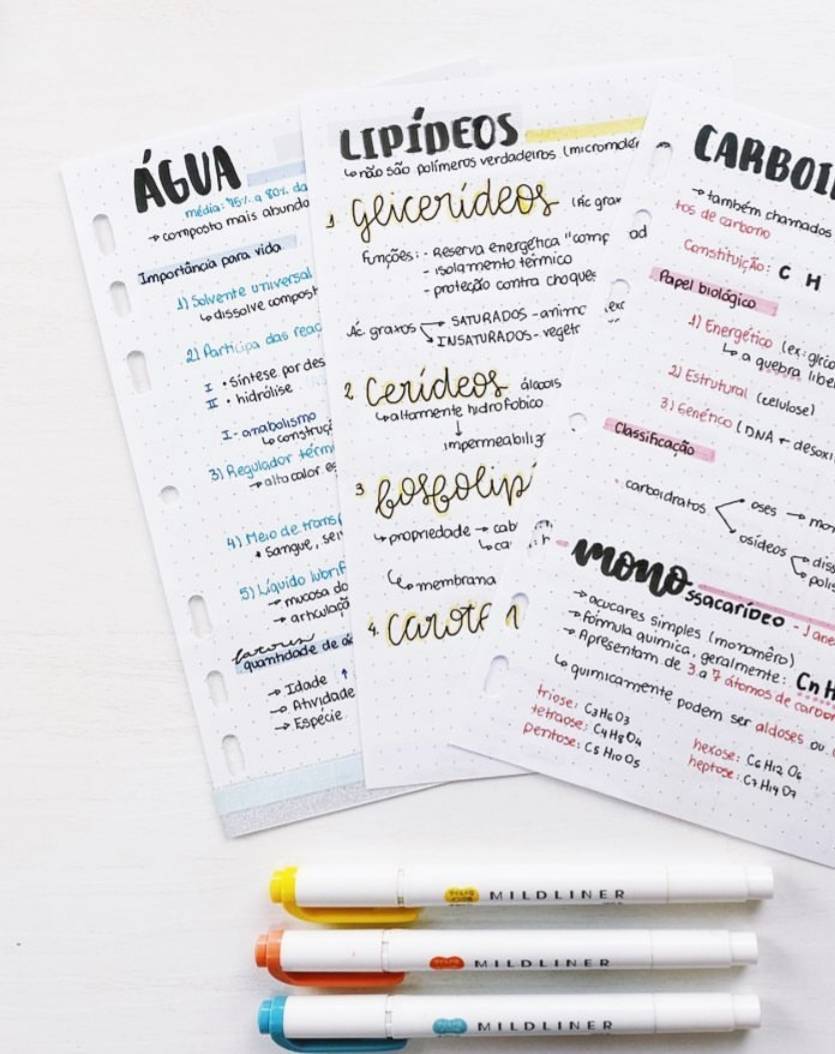 ÁGUA
média: 75% a 80% da
→ composto mais abunda
Importância para vida
1) Solvente universal
↳ dissolve compost
2) Participa das reaç
I • síntese por des
II • hidrólise
I - anabolismo
↳ construç
3) Regulador térm
→ alto calor es
4) Meio de trans
• Sangue, sei
5) Líquido lubrif
→ mucosa do
→ articulaçã
quantidade de ág
→ Idade ↑
→ Atividade
→ Espécie
LIPÍDEOS
↳ não são polímeros verdadeiros (micromolér
1 Glicerídeos (Ác grax
Funções: - Reserva energética "comp
- isolamento térmico
- proteção contra choques
Ác graxos → SATURADOS - anima
→ INSATURADOS - veget
2 Cerídeos álcoois
↳ altamente hidrofóbico
↓
impermeabiliz
3 Fosfolip
↳ propriedade → cab
↳ ca
↳ membrana
4. Carote
CARBOI
→ também chamados
tos de carbono
Constituição: C H
Papel biológico
1) Energético (ex: glico
↳ a quebra libe
2) Estrutural (celulose)
3) Genético (DNA → desoxi
Classificação
• carboidratos
oses → mon
osídeos → diss
→ polis
MONOssacarídeo - Jane
→ açucares simples (monomêro)
→ Fórmula química, geralmente: Cn H
→ Apresentam de 3 a 7 átomos de carbon
↳ quimicamente podem ser aldoses ou
triose: C3H6O3
tetraose: C4H8O4
pentose: C5H10O5
hexose: C6H12O6
heptose: C7H14O7
MILDLINER
MILDLINER
MILDLINER